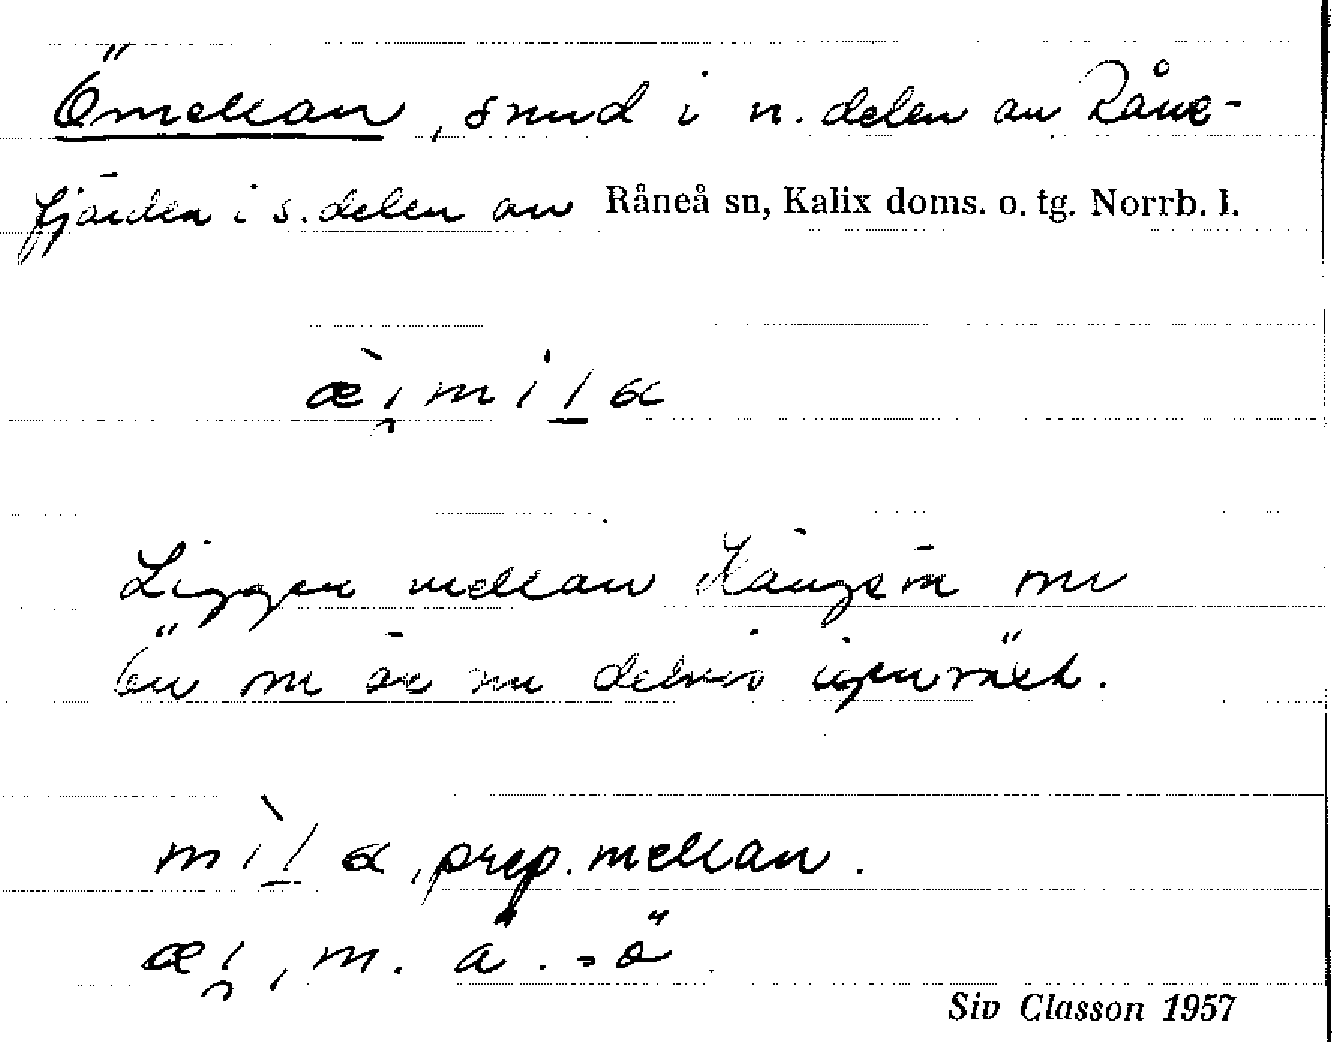 Ömellan, sund i n. delen av Råne-
fjärden i s. delen av Råneå sn, Kalix doms. o. tg. Norrb. l.
Ligger mellan och
Ön och är nu delvis igenväxt.
, prep. mellan.
, m. ö
Siv Classon 1957